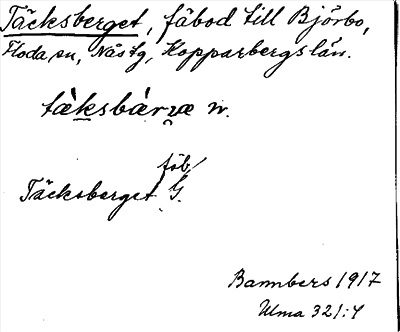 Täcksberget, fäbod till Björbo,
Floda sn, Nås tg, Kopparbergs län.
tæ̀ksbàrvæ n.
fäb/
Täcksberget G.
Bannbers 1917
Ulma 321:4